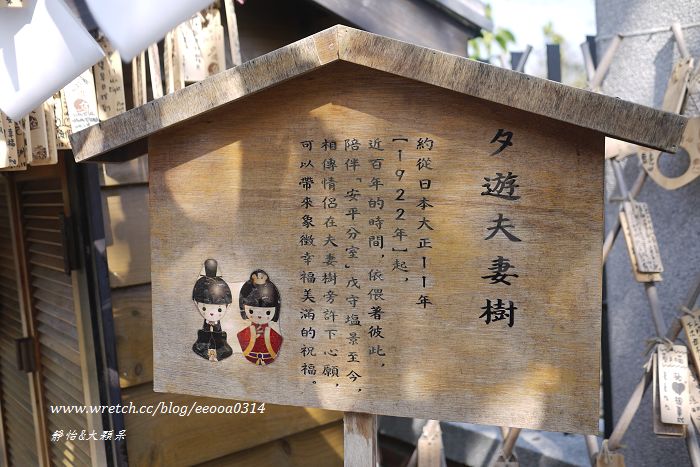 夕遊夫妻樹
約從日本大正11年
【1922年】起，
近百年的時間，依偎著彼此，
陪伴「安平分室」戍守塩景至今，
相傳情侶在夫妻樹旁許下心願，
可以帶來象徵幸福美滿的祝福。
www.wretch.cc/blog/eeooa0314
靜怡&大顆呆